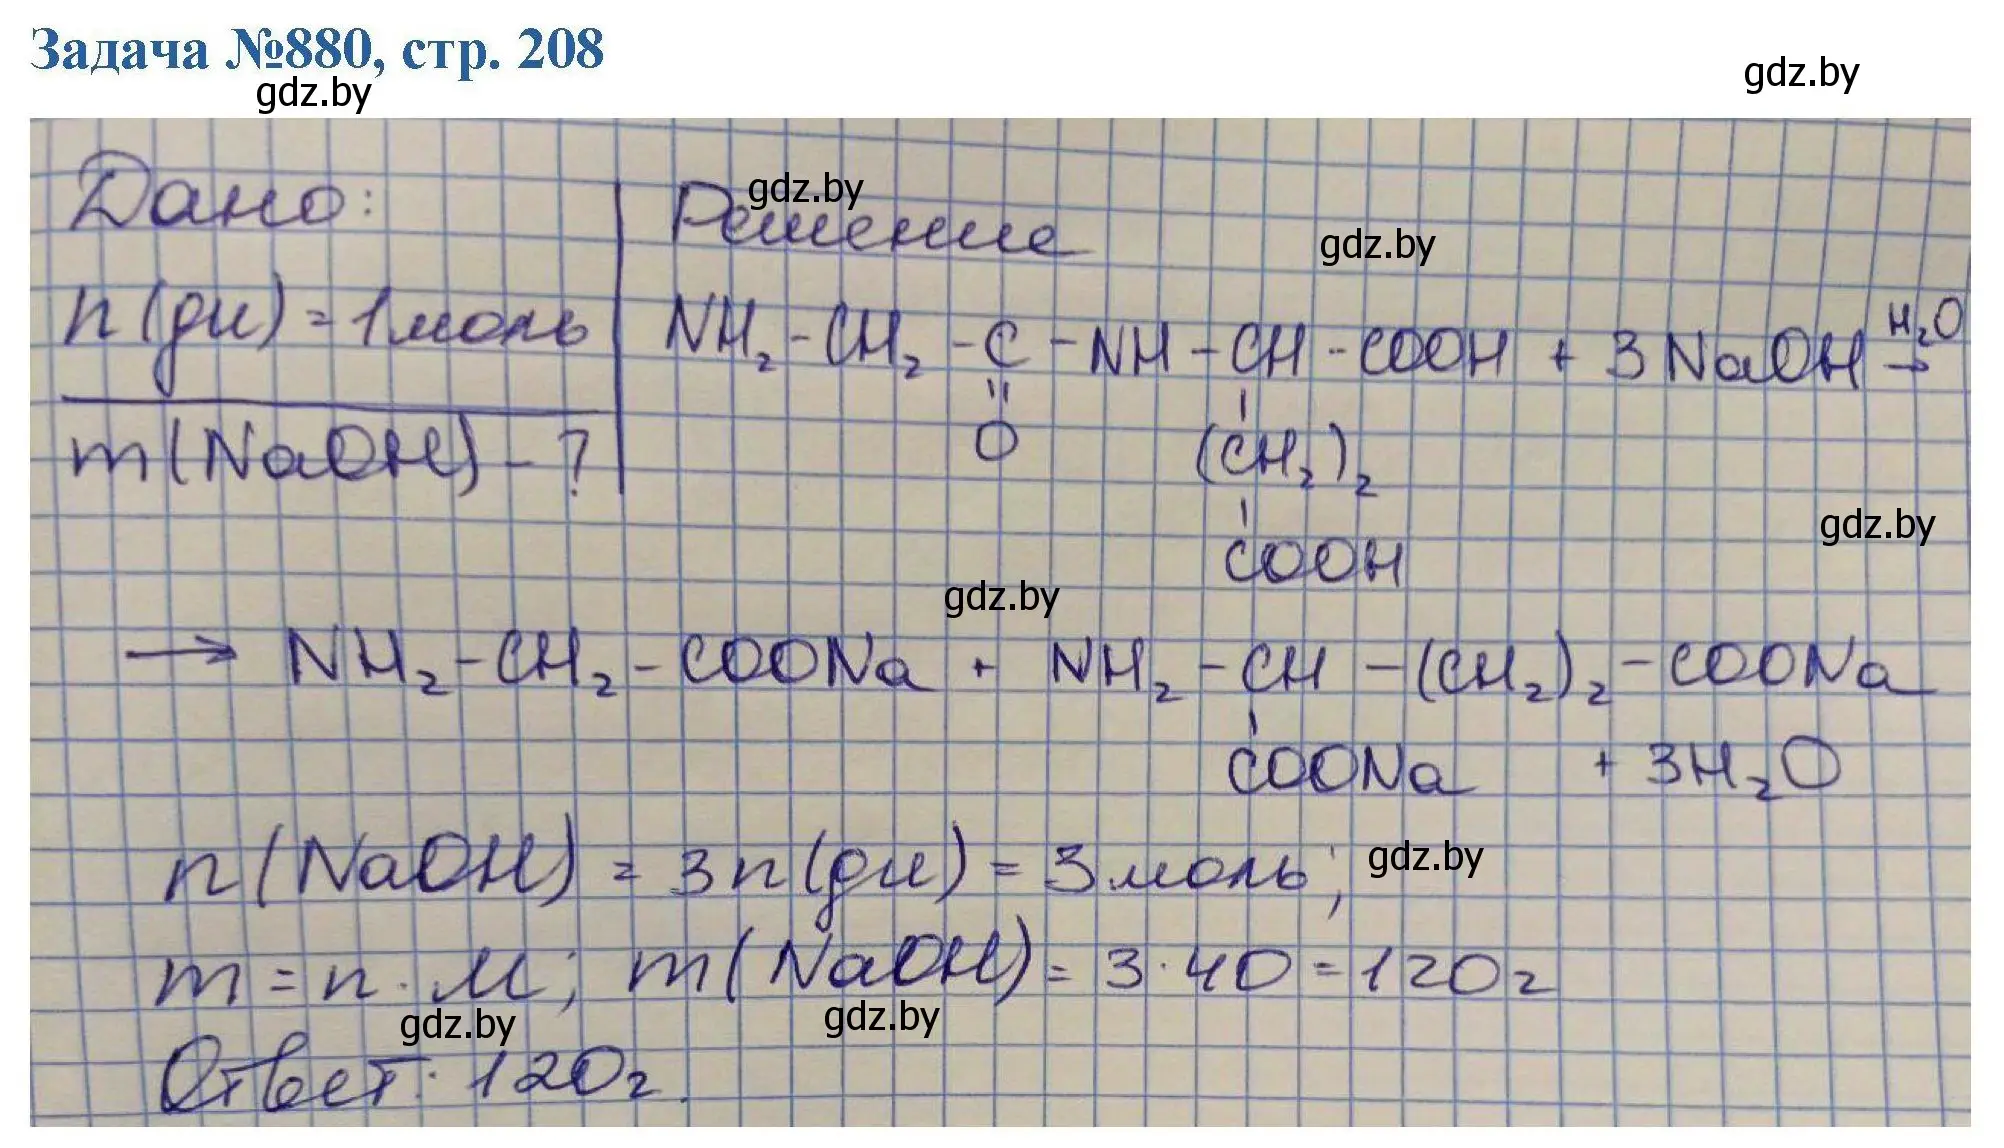 Задача №880, стр. 208
gdz.by
gdz.by
Дано:
n(ди) = 1моль
m(NaOH) - ?
gdz.by
Решение
gdz.by
NH₂ - CH₂ - C - NH - CH - COOH + 3 NaOH H₂O→
"
O
'
(CH₂)₂
'
COOH
gdz.by
gdz.by
→ NH₂ - CH₂ - COONa + NH₂ - CH - (CH₂)₂ - COONa
'
COONa + 3H₂O
n(NaOH) = 3n(ди) = 3моль;
gdz.by
m = n · M; m(NaOH) = 3 · 40 = 120г
gdz.by
gdz.by
Ответ: 120г.